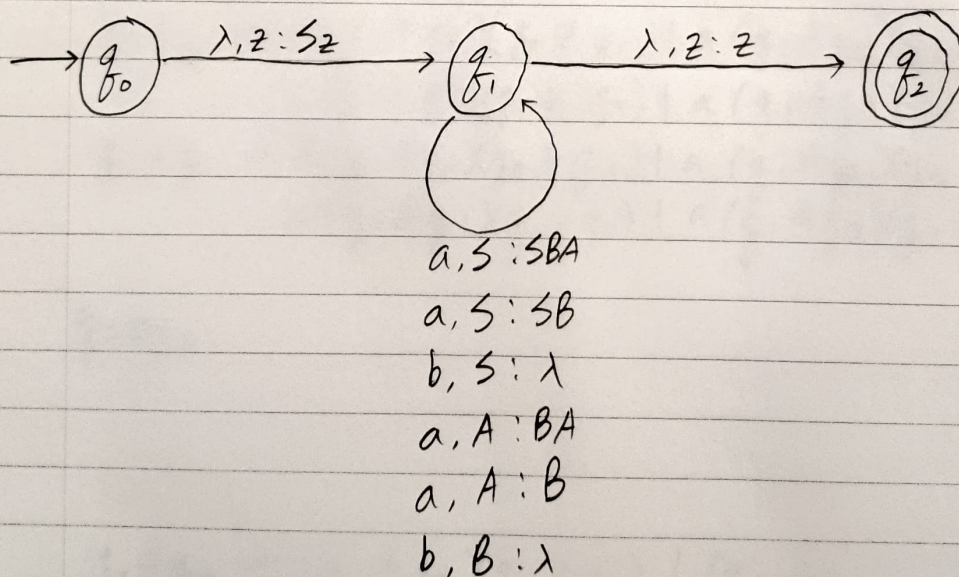 q₀ λ, z : Sz q₁ λ, z : z q₂
a, S : SBA
a, S : SB
b, S : λ
a, A : BA
a, A : B
b, B : λ